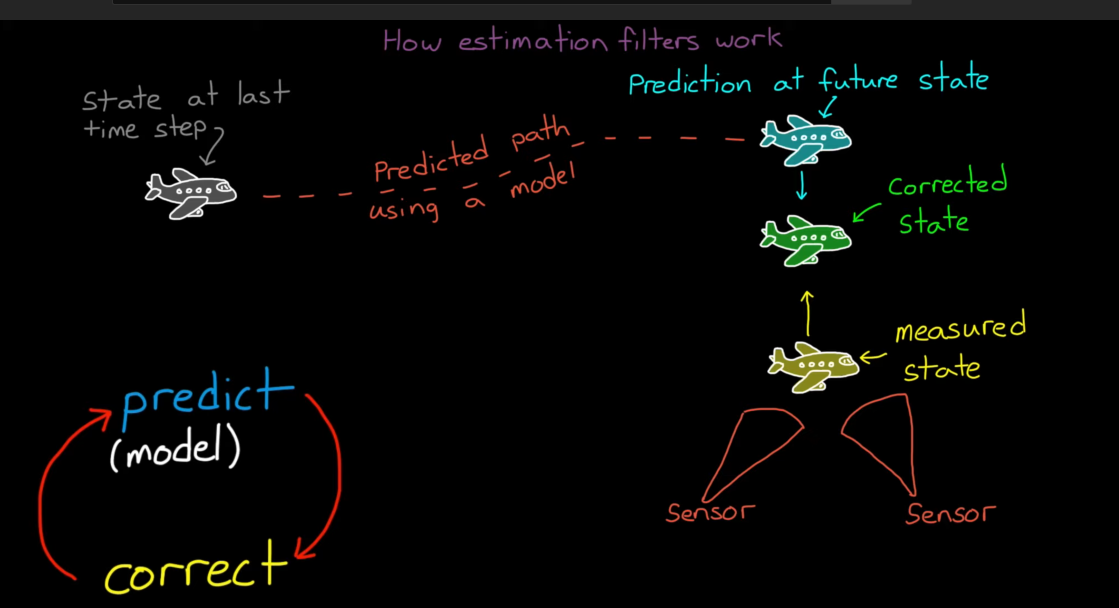 How estimation filters work
State at last
time step
Predicted path
using a model
Prediction at future state
Corrected
state
measured
state
Sensor
Sensor
predict
(model)
correct